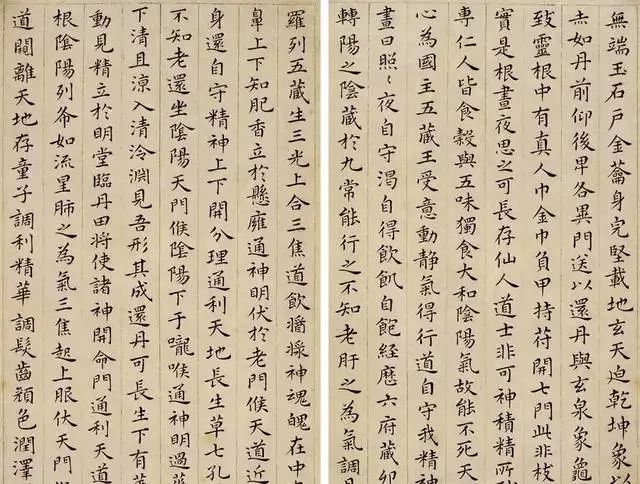 無端玉石戶金籥身完堅載地玄天迫乾坤象以
赤如丹前仰後卑各異門送以還丹與玄泉象龜
致靈根中有真人巾金巾負甲持苻開七門此非枝
實是根晝夜思之可長存仙人道士非可神積精所
專仁人皆食穀與五味獨食大和陰陽氣故能不死天
心為國主五藏王受意動靜氣得行道自守我精神
晝日照〻夜自守渴自得飲飢自飽經歷六府藏卯
轉陽之陰藏於九常能行之不知老肝之為氣調且
羅列五藏生三光上合三焦道飲醬漿神魂魄在中
鼻上下知肥香立於懸膺通神明伏於老門候天道近
身還自守精神上下開分理通利天地長生草七孔
不知老還坐陰陽天門候陰陽下于嚨喉通神明過華
下清且涼入清泠淵見吾形其成還丹可長生下有華
動見精立於明堂臨丹田將使諸神開命門通利天道
根陰陽列布如流星肺之為氣三焦起上服伏天門
道闚離天地存童子調利精華調髮齒顏色潤澤